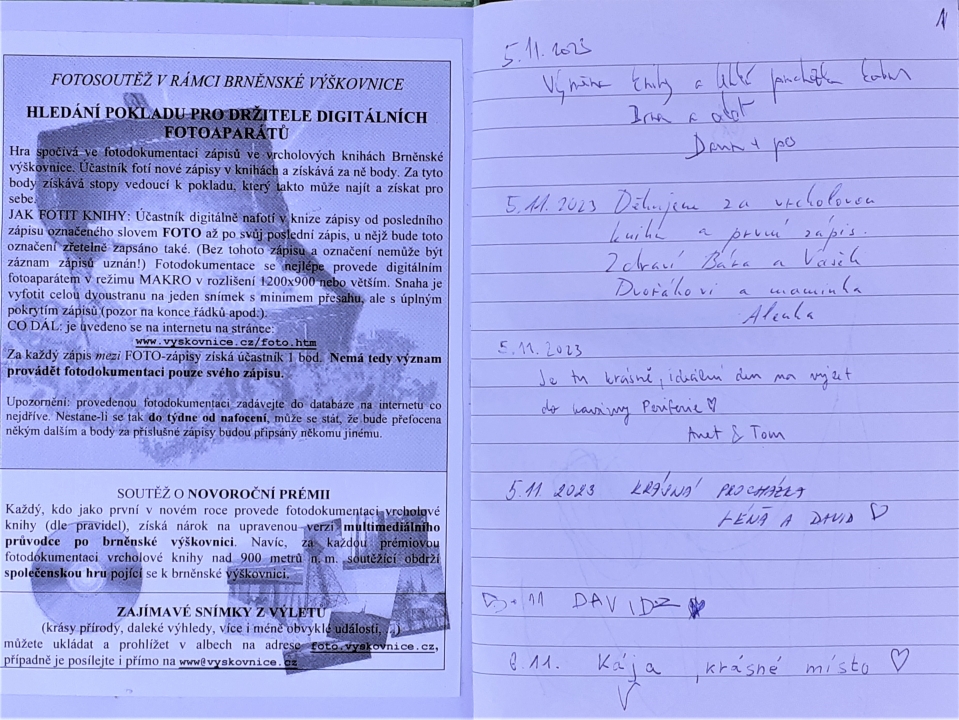 FOTOSOUTĚŽ V RÁMCI BRNĚNSKÉ VÝŠKOVNICE
HLEDÁNÍ POKLADU PRO DRŽITELE DIGITÁLNÍCH
FOTOAPARÁTŮ
Hra spočívá ve fotodokumentaci zápisů ve vrcholových knihách Brněnské
výškovnice. Účastník fotí nové zápisy v knihách a získává za ně body. Za tyto
body získává stopy vedoucí k pokladu, který takto může najít a získat pro
sebe.
JAK FOTIT KNIHY: Účastník digitálně nafotí v knize zápisy od posledního
zápisu označeného slovem FOTO až po svůj poslední zápis, u nějž bude toto
označení zřetelně zapsáno také. (Bez tohoto zápisu a označení nemůže být
záznam zápisů uznán!) Fotodokumentace se nejlépe provede digitálním
fotoaparátem v režimu MAKRO v rozlišení 1200x900 nebo větším. Snaha je
vyfotit celou dvoustranu na jeden snímek s minimem přesahu, ale s úplným
pokrytím zápisů (pozor na konce řádků apod.).
CO DÁL: je uvedeno se na internetu na stránce:
www.vyskovnice.cz/foto.htm
Za každý zápis mezi FOTO-zápisy získá účastník 1 bod. Nemá tedy význam
provádět fotodokumentaci pouze svého zápisu.
Upozornění: provedenou fotodokumentaci zadávejte do databáze na internetu co
nejdříve. Nestane-li se tak do týdne od nafocení, může se stát, že bude přefocena
někým dalším a body za příslušné zápisy budou připsány někomu jinému.
SOUTĚŽ O NOVOROČNÍ PRÉMII
Každý, kdo jako první v novém roce provede fotodokumentaci vrcholové
knihy (dle pravidel), získá nárok na upravenou verzi multimediálního
průvodce po brněnské výškovnici. Navíc, za každou prémiovou
fotodokumentaci vrcholové knihy nad 900 metrů n. m. soutěžící obdrží
společenskou hru pojící se k brněnské výškovnici.
ZAJÍMAVÉ SNÍMKY Z VÝLETŮ
(krásy přírody, daleké výhledy, více i méně obvyklé události, ...)
můžete ukládat a prohlížet v albech na adrese foto.vyskovnice.cz,
případně je posílejte i přímo na www@vyskovnice.cz
1
5.11.2023
Výměna knihy a
5.11.2023 Děkujeme za vrcholovou
knihu a první zápis.
Zdraví Bára a Vašek
Dvořákovi a maminka
Alenka
5.11.2023
Je tu krásně, ideální den na výlet
do kavárny Periferie ♡
Anet & Tom
5.11 2023 KRÁSNÁ PROCHÁZKA
A DAVID ♡
11 DAVID
8.11. Kája, krásné místo ♡